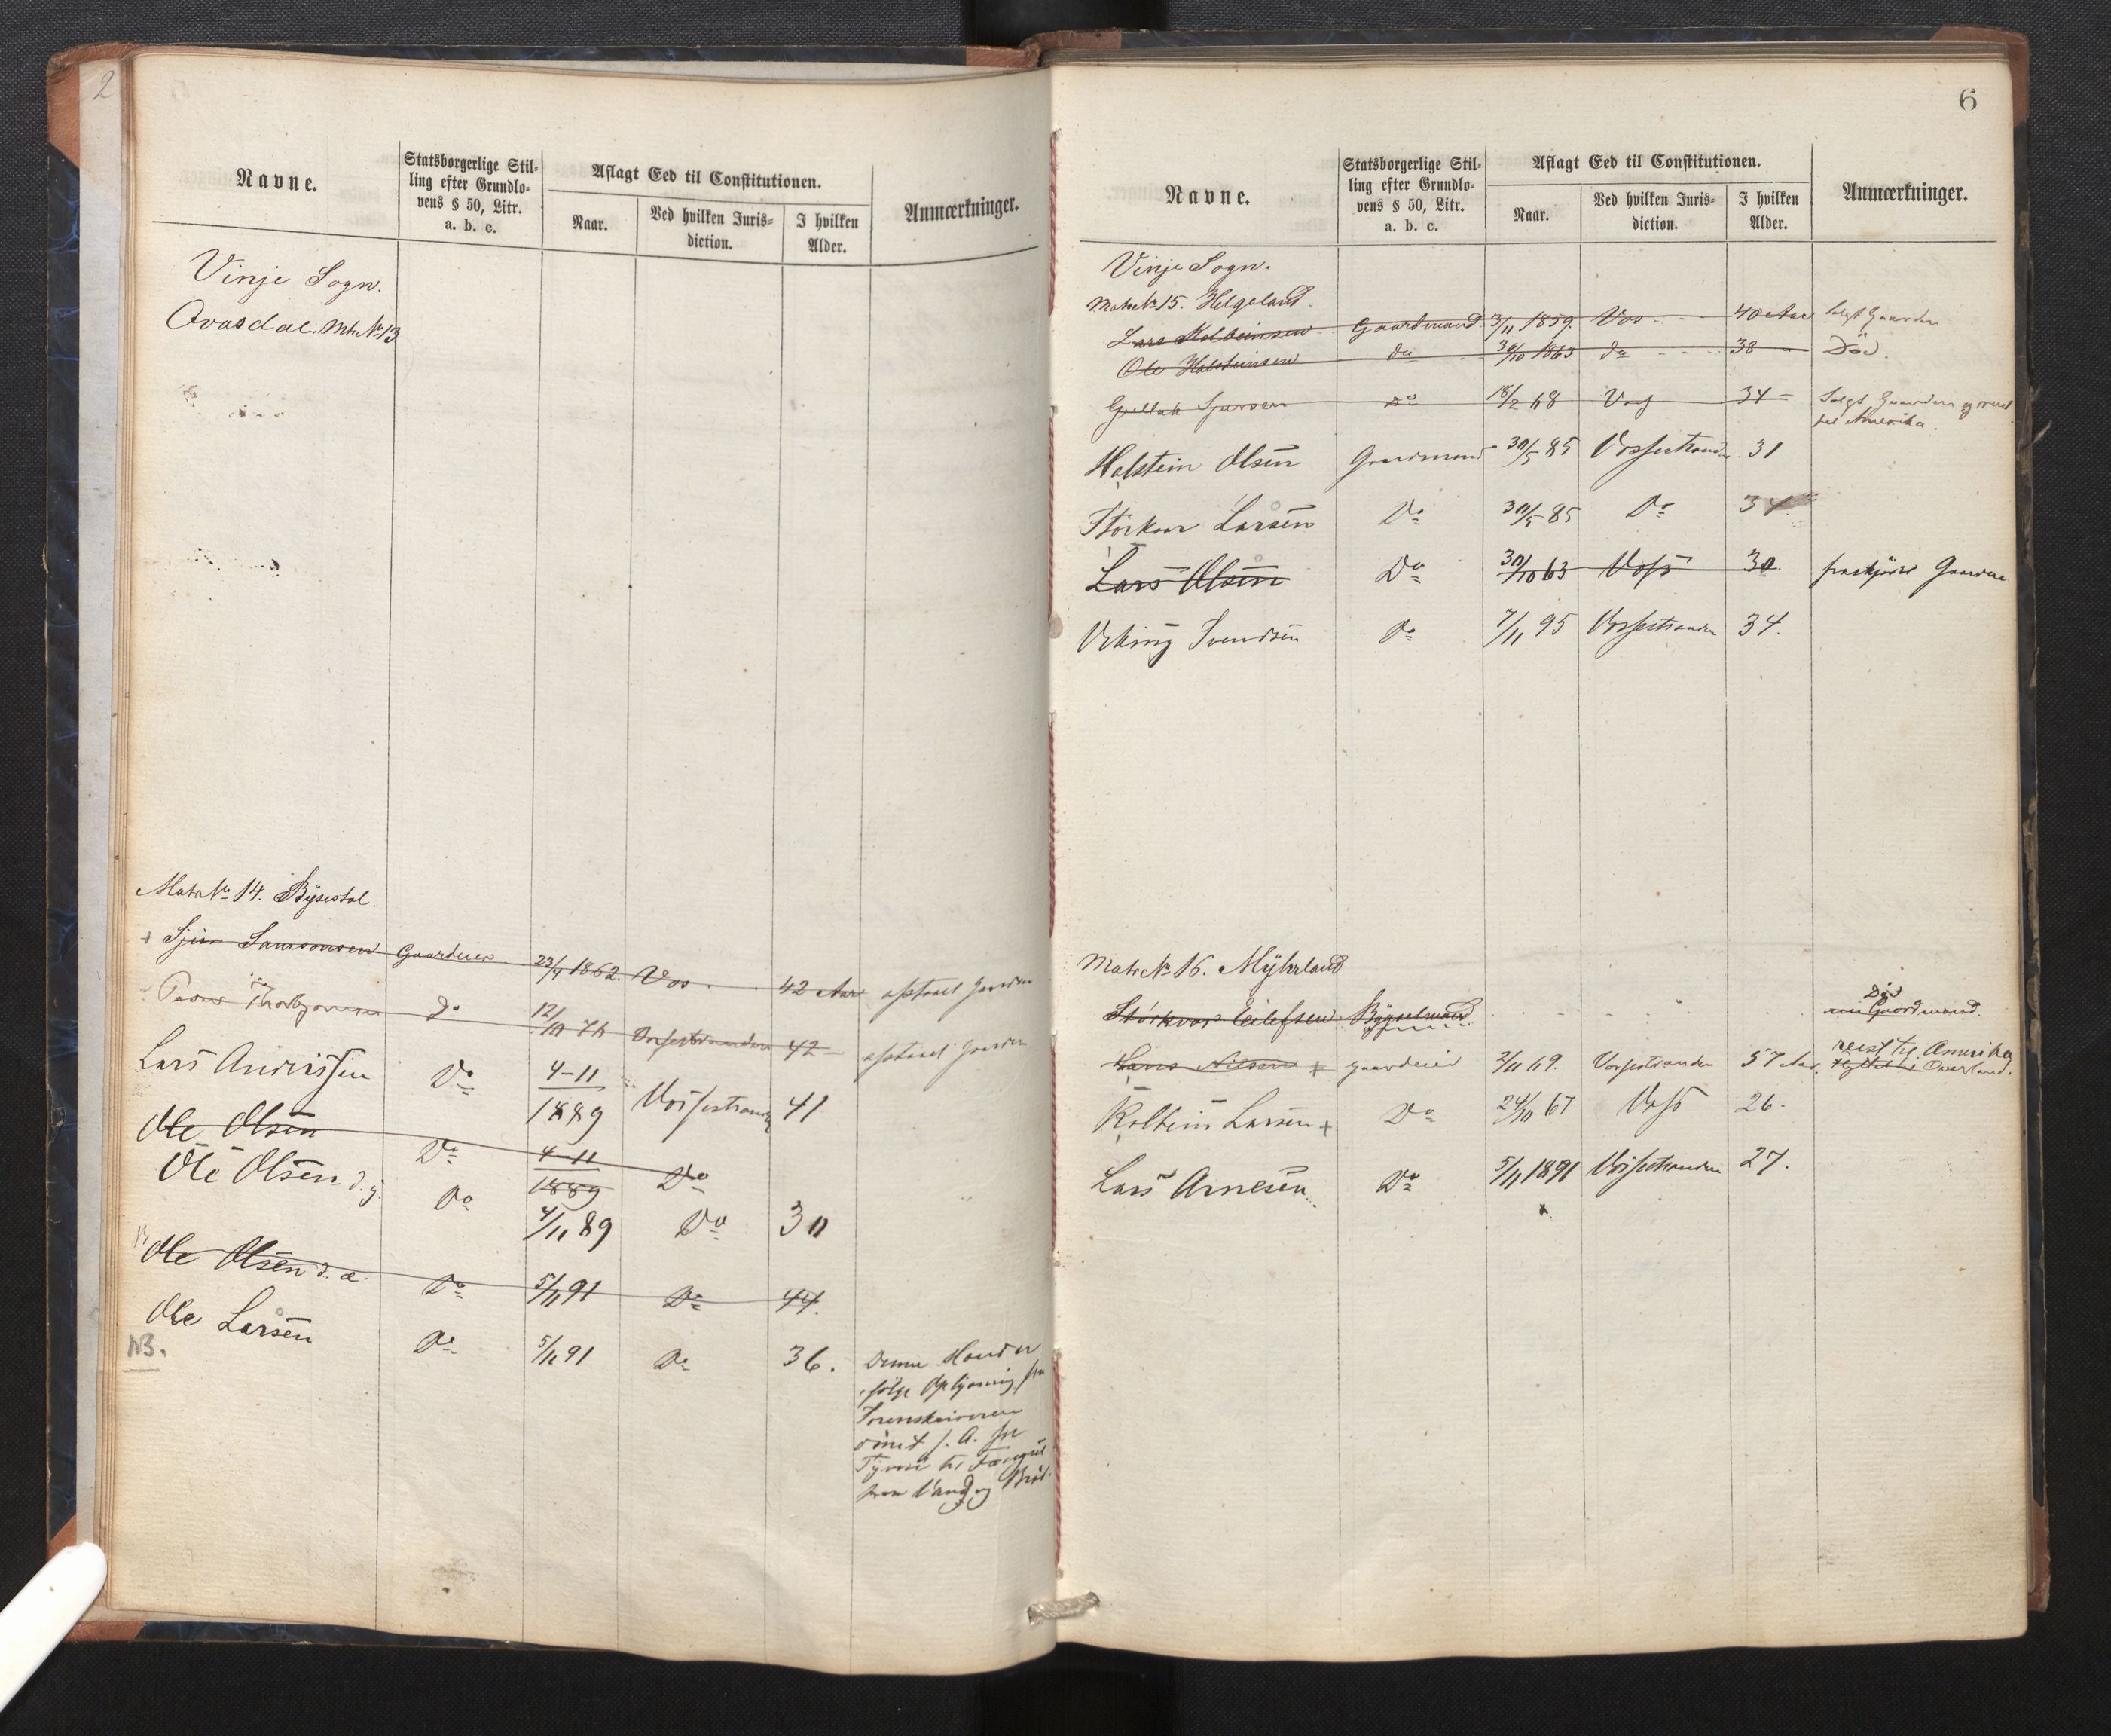 2
Navne.
Statsborgerlige Stil-
ling efter Grundlo-
vens § 50, Litr.
a. b. c.
Aflagt Eed til Constitutionen.
Naar.
Ved hvilken Juris-
diction.
I hvilken
Alder.
Anmærkninger.
Vinje Sogn.
Ovasdal. Mtr. No 13
Matr No 14. Bysestol.
+ Sjur Samsonsen Gaardeier 23/9 1862. Vos 42 Aar afstaaet Gaarden
do 12/10 Vossestranden 42 afstaaet Gaarden
Lars Anderssen Do 4-11 1889 Vossestranden 41
Ole Olsen Do 4-11 1889 Do
Ole Olsen d. y. Do 4/11 89 Do 30
Ole Olsen d. æ. Do 5/11 91 Do 44.
Ole Larsen Do 5/11 91 Do 36.
NB.
Denne Mand er
ifølge Oplysning fra
Sorenskriveren
dømt f. A. for
Tyveri til Fængsel
paa Vand og Brød
6
Navne.
Statsborgerlige Stil-
ling efter Grundlo-
vens § 50, Litr.
a. b. c.
Aflagt Eed til Constitutionen.
Naar.
Ved hvilken Juris-
diction.
I hvilken
Alder.
Anmærkninger.
Vinje Sogn.
Matr No 15. Helgeland.
Lars Kolbeinsen Gaardmand 3/11 1859. Vos 40 Aar Solgt Gaarden
Ole Halsteinsen do 30/10 1863 do 38 Død.
Gullak Sjursen Do 18/2 68 Vos 34 Solgt Gaarden og reist
til Amerika.
Halstein Olsen Gaardmand 30/5 85 Vossestranden 31
Storkaar Larsen Do 30/5 85 Do 34
Lars Olsen Do 30/10 63 Voss 30. fraskjødet Gaarden
Viking Svendsen Do 7/11 95 Vossestranden 34.
Matr No 16. Myhrland
Storkaar Eilefsen Bygselmand
Død
Gaardmand.
Lars Nilsen + gaardeier 2/11 69. Vossestranden 57 Aar. reist til Amerika
flyttet til Overland.
Kolbein Larsen + Do 24/10 67 Voss 26.
Lars Arnesen Do 5/11 1891 Vossestranden 27.